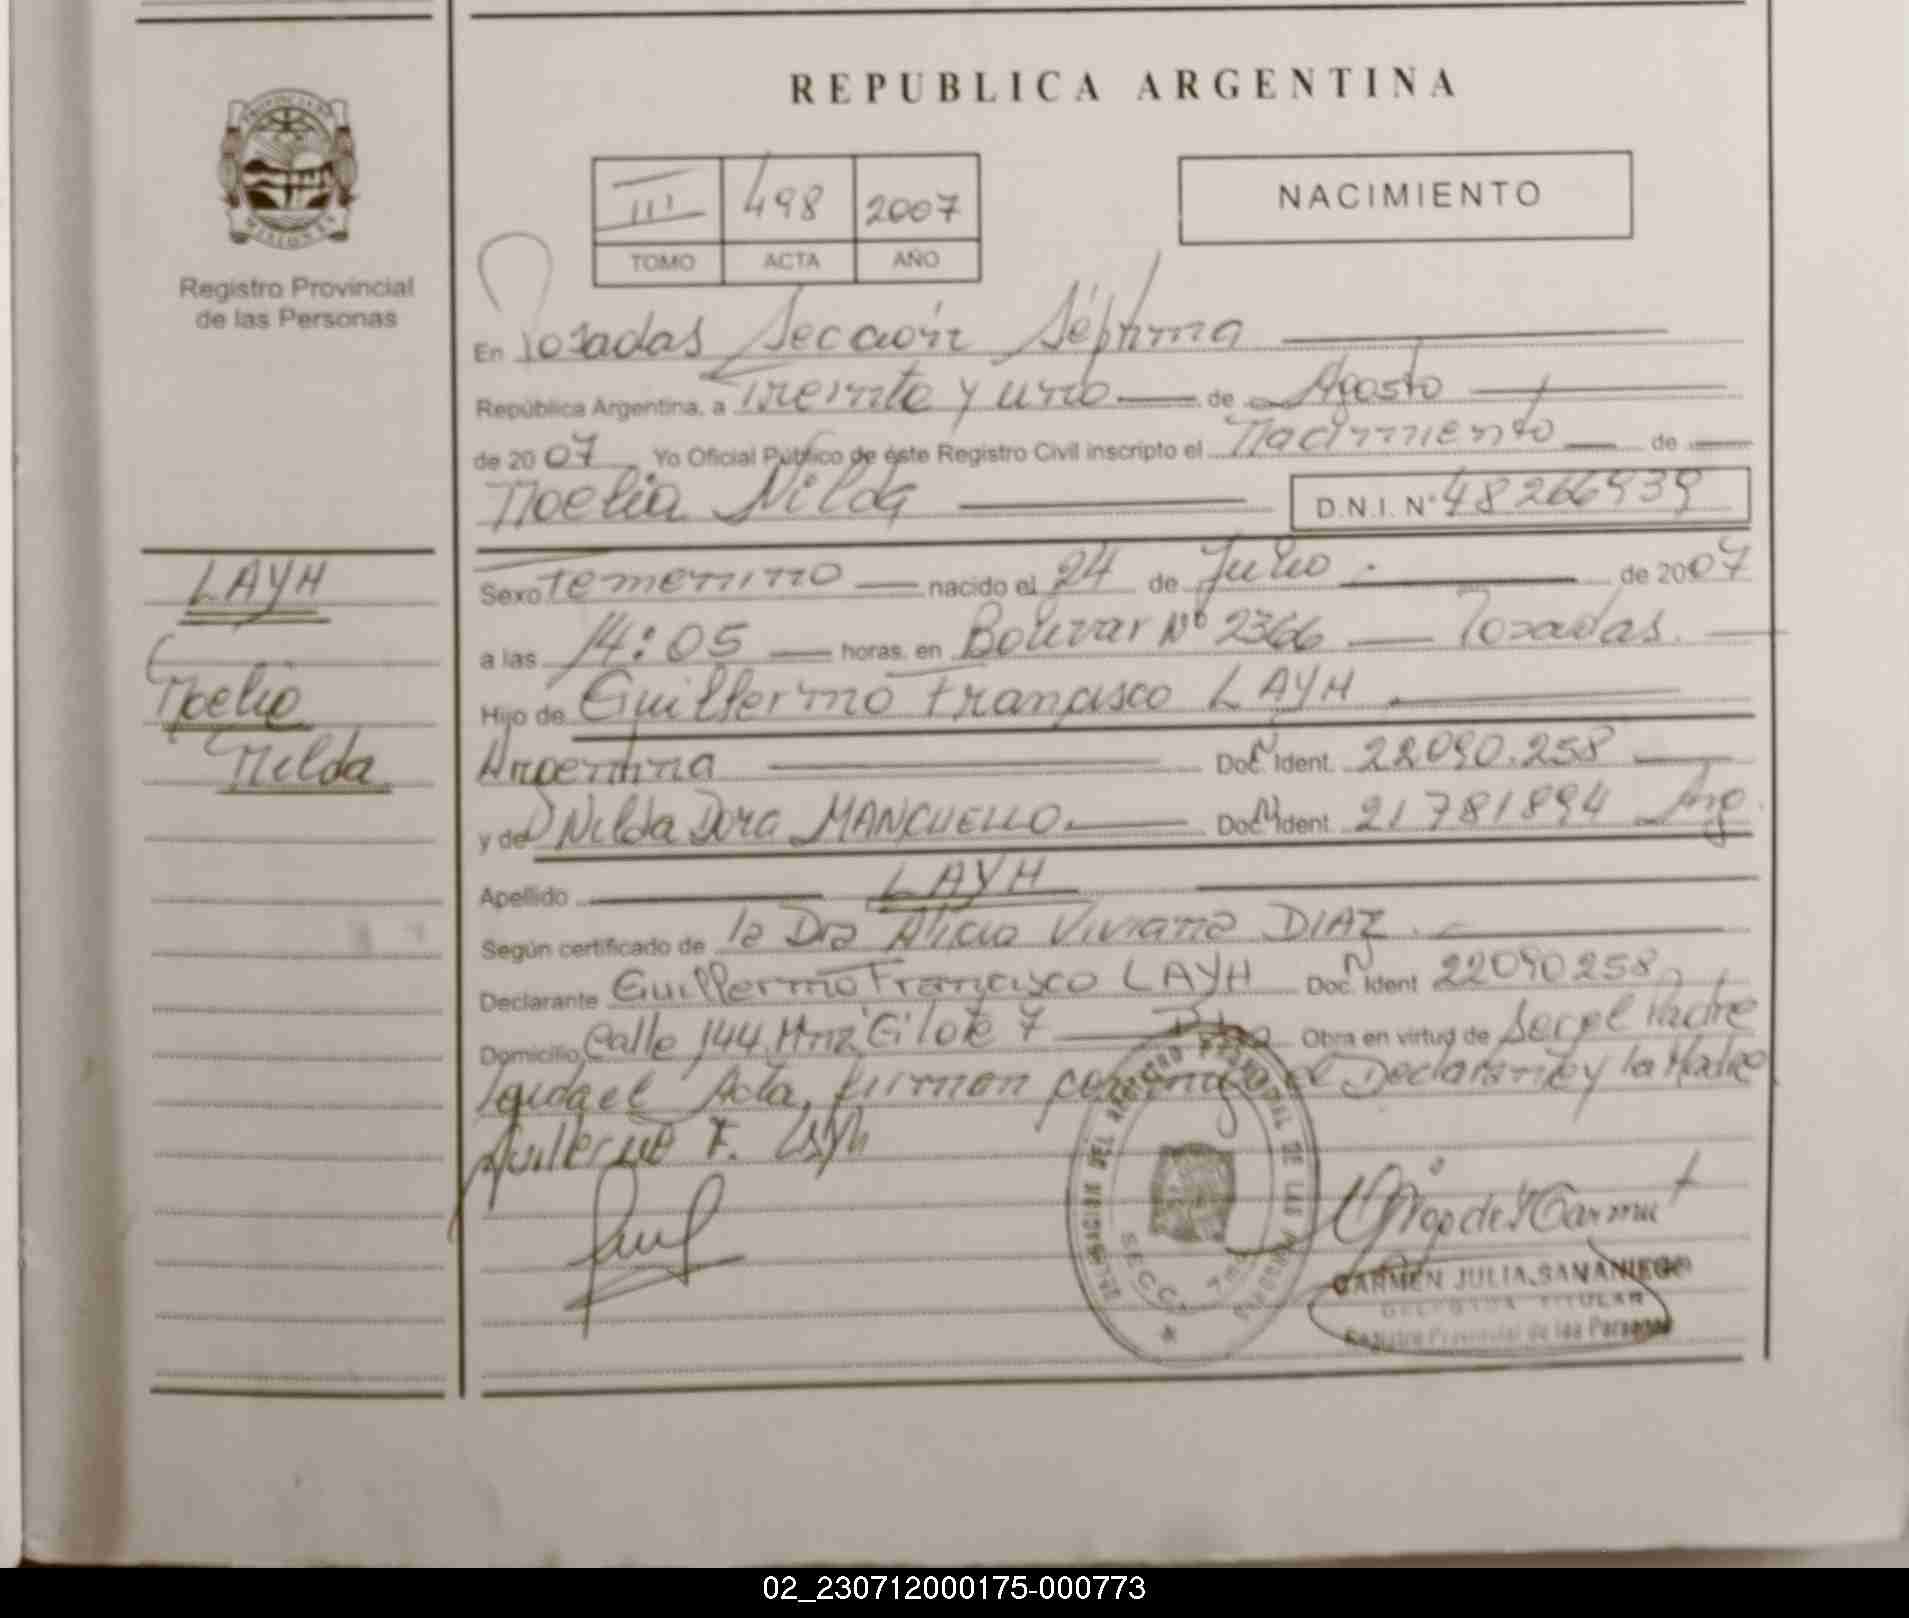 REPUBLICA ARGENTINA
PROVINCIA DE
MISIONES
Registro Provincial
de las Personas
III 498 2007
TOMO ACTA AÑO
NACIMIENTO
En Posadas Sección Séptima
República Argentina, a Treinta y uno de Agosto
de 2007 Yo Oficial Público de éste Registro Civil inscripto el Nacimiento de
Noelia Nilda D.N.I. N° 48266939
LAYH
Noelia
Nilda
Sexo Femenino nacido el 24 de Julio de 2007
a las 14:05 horas, en Bolivar Nº 2366 Posadas.
Hijo de Guillermo Francisco LAYH
Argentina Doc. N Ident. 22090.258
y de Nilda Dora MANCUELLO Doc. N Ident. 21781894 Arg.
Apellido LAYH
Según certificado de la Dra Alicia Viviana DIAZ.
Declarante Guillermo Francisco LAYH Doc. N Ident 22090258
Domicilio Calle 144 Mnz "G" lote 7 Obra en virtud de Ser el Padre
Leida el Acta, firman conmigo el Declarante y la Madre
Guillermo F. Layh
DEL REGISTRO PROVINCIAL DE LAS PERSONAS
SECC. 7ma
CARMEN JULIA SAMANIEGO
DELEGADA TITULAR
Registro Provincial de las Personas
02_230712000175-000773